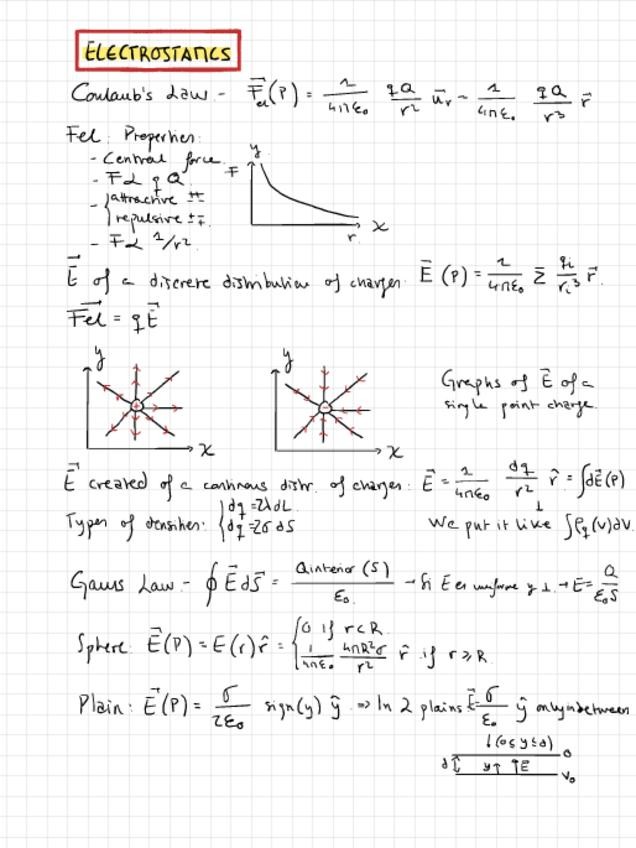 ELECTROSTATICS
Coulomb's Law - F⃗el(P) = 1/4πε₀ qQ/r² u⃗r - 1/4πε₀ qQ/r³ r⃗
Fel: Properties:
- Central force
- F α qQ
- { attractive ±±
repulsive ±∓
- F α 1/r²
y
F
r
x
E⃗ of a discrete distribution of charges: E⃗(P) = 1/4πε₀ Σ qi/ri³ r⃗.
F⃗el = qE⃗
y
+
x
y
-
x
Graphs of E⃗ of a
single point charge.
E⃗ created of a continous distr. of charges: E⃗ = 1/4πε₀ dq/r² r̂ = ∫dE⃗(P)
Types of densities: { dq = λdL
dq = σdS
We put it like ∫ρq(v)dV.
Gauss Law - ∮E⃗dS⃗ = Qinterior(S)/ε₀ → Si E es uniforme y ⊥ → E = Q/ε₀S
Sphere: E⃗(P) = E(r)r̂ = { 0 if r<R
1/4πε₀ 4πR²σ/r² r̂ if r≥R
Plain: E⃗(P) = σ/2ε₀ sign(y) ŷ ⇒ In 2 plains E⃗ = σ/ε₀ ŷ only in between
↓(0≤y≤d)
0
d↕ y↑ ↑E
V₀